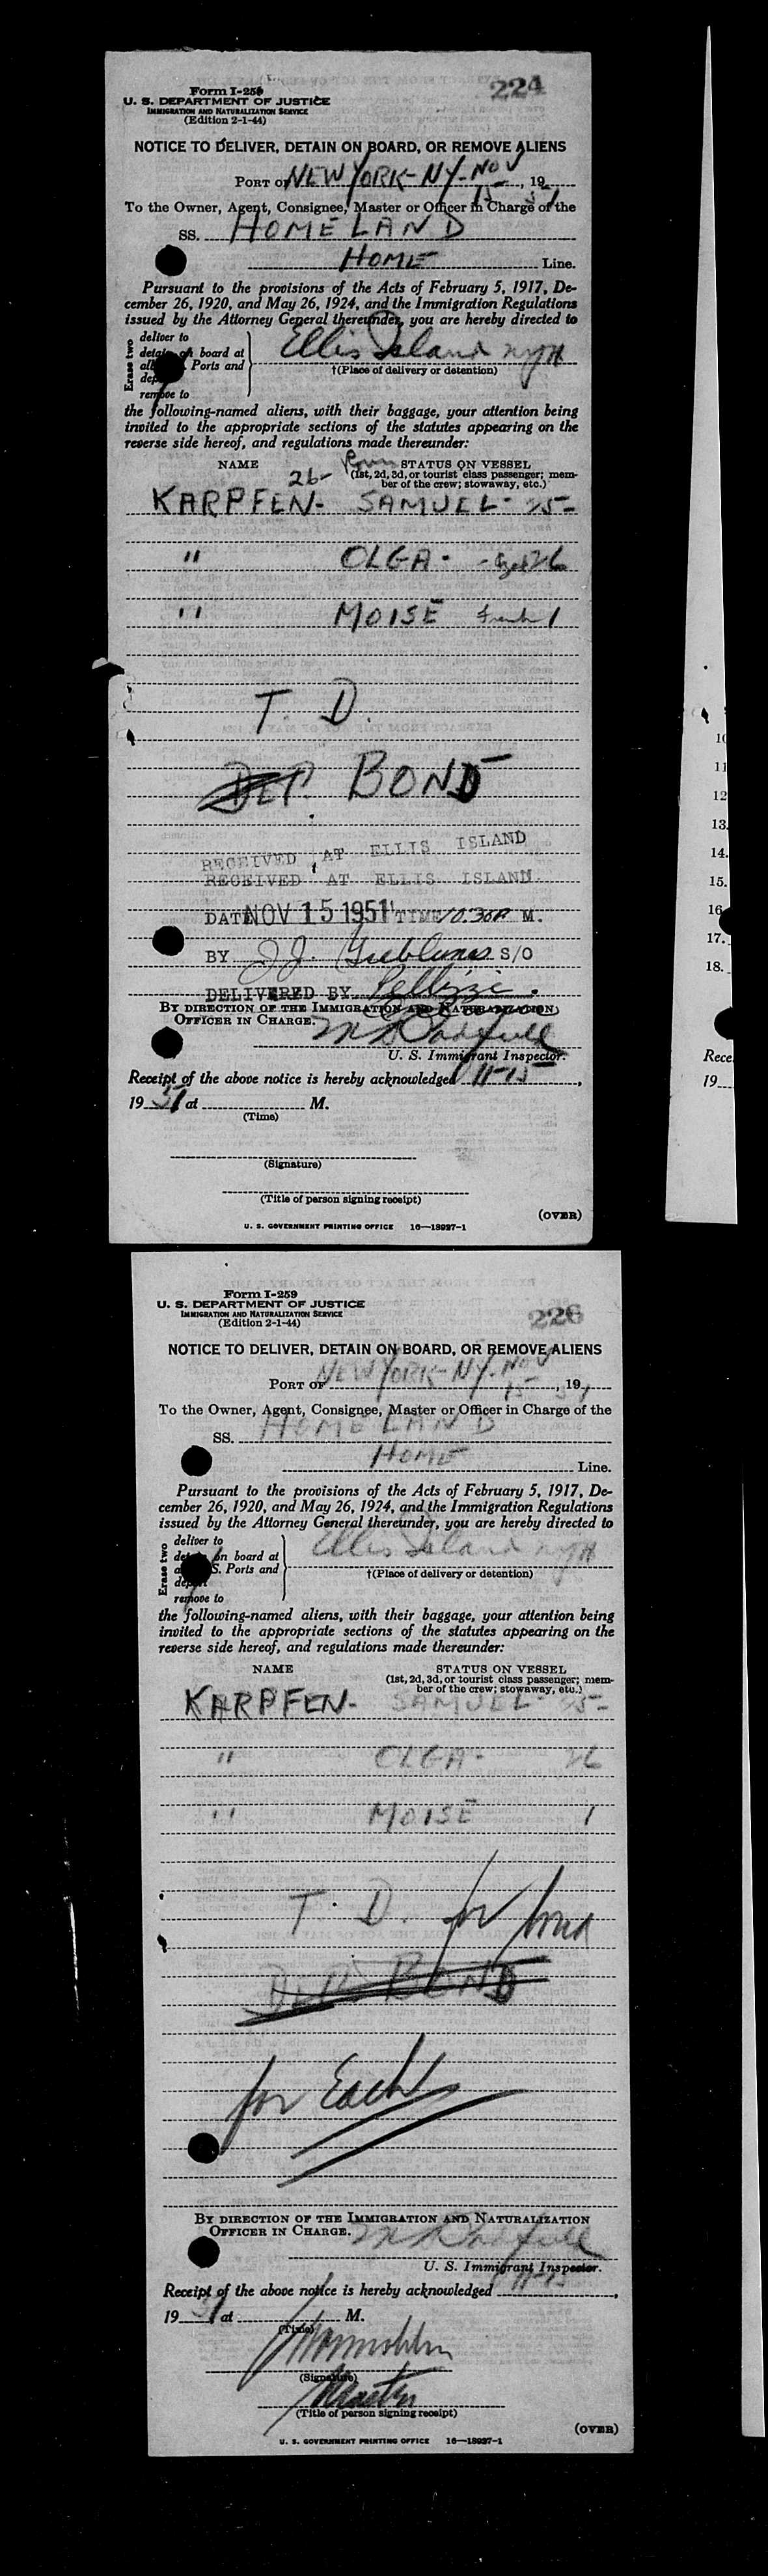 224
Form I-259
U. S. DEPARTMENT OF JUSTICE
IMMIGRATION AND NATURALIZATION SERVICE
(Edition 2-1-44)
NOTICE TO DELIVER, DETAIN ON BOARD, OR REMOVE ALIENS
PORT OF NEW YORK - NY. NOV 15, 1951
To the Owner, Agent, Consignee, Master or Officer in Charge of the
SS. HOMELAND
HOME Line.
Pursuant to the provisions of the Acts of February 5, 1917, De-
cember 26, 1920, and May 26, 1924, and the Immigration Regulations
issued by the Attorney General thereunder, you are hereby directed to
Erase two
deliver to
detain on board at
Ports and
remove to
Ellis Island NYH
†(Place of delivery or detention)
the following-named aliens, with their baggage, your attention being
invited to the appropriate sections of the statutes appearing on the
reverse side hereof, and regulations made thereunder:
NAME
STATUS ON VESSEL
(1st, 2d, 3d, or tourist class passenger; mem-
ber of the crew; stowaway, etc.)
26-
KARPFEN- SAMUEL- 25-
" OLGA - 26
" MOISE 1
T. D.
DEP. BOND
RECEIVED AT ELLIS ISLAND
RECEIVED AT ELLIS ISLAND.
DATE NOV 15 1951 TIME 10:30P M.
BY J.J. S/O
DELIVERED BY Pellizzi.
BY DIRECTION OF THE IMMIGRATION AND NATURALIZATION
OFFICER IN CHARGE.
U. S. Immigrant Inspector.
Receipt of the above notice is hereby acknowledged 11-15,
1951 at M.
(Time)
(Signature)
(Title of person signing receipt)
(OVER)
U. S. GOVERNMENT PRINTING OFFICE 16—18927-1
11
12
13.
14.
15.
16
17.
18.
Rece
19
226
Form I-259
U. S. DEPARTMENT OF JUSTICE
IMMIGRATION AND NATURALIZATION SERVICE
(Edition 2-1-44)
NOTICE TO DELIVER, DETAIN ON BOARD, OR REMOVE ALIENS
PORT OF NEW YORK - NY. NOV 15, 1951
To the Owner, Agent, Consignee, Master or Officer in Charge of the
SS. HOMELAND
HOME Line.
Pursuant to the provisions of the Acts of February 5, 1917, De-
cember 26, 1920, and May 26, 1924, and the Immigration Regulations
issued by the Attorney General thereunder, you are hereby directed to
Erase two
deliver to
on board at
S. Ports and
remove to
Ellis Island NYH
†(Place of delivery or detention)
the following-named aliens, with their baggage, your attention being
invited to the appropriate sections of the statutes appearing on the
reverse side hereof, and regulations made thereunder:
NAME
STATUS ON VESSEL
(1st, 2d, 3d, or tourist class passenger; mem-
ber of the crew; stowaway, etc.)
KARPFEN- SAMUEL- 25-
" OLGA - 26
" MOISE 1
T. D. for bond
DEP. BOND
for Each
BY DIRECTION OF THE IMMIGRATION AND NATURALIZATION
OFFICER IN CHARGE.
U. S. Immigrant Inspector.
Receipt of the above notice is hereby acknowledged 11-15,
1951 at M.
(Time)
(Signature)
Master
(Title of person signing receipt)
(OVER)
U. S. GOVERNMENT PRINTING OFFICE 16—18927-1